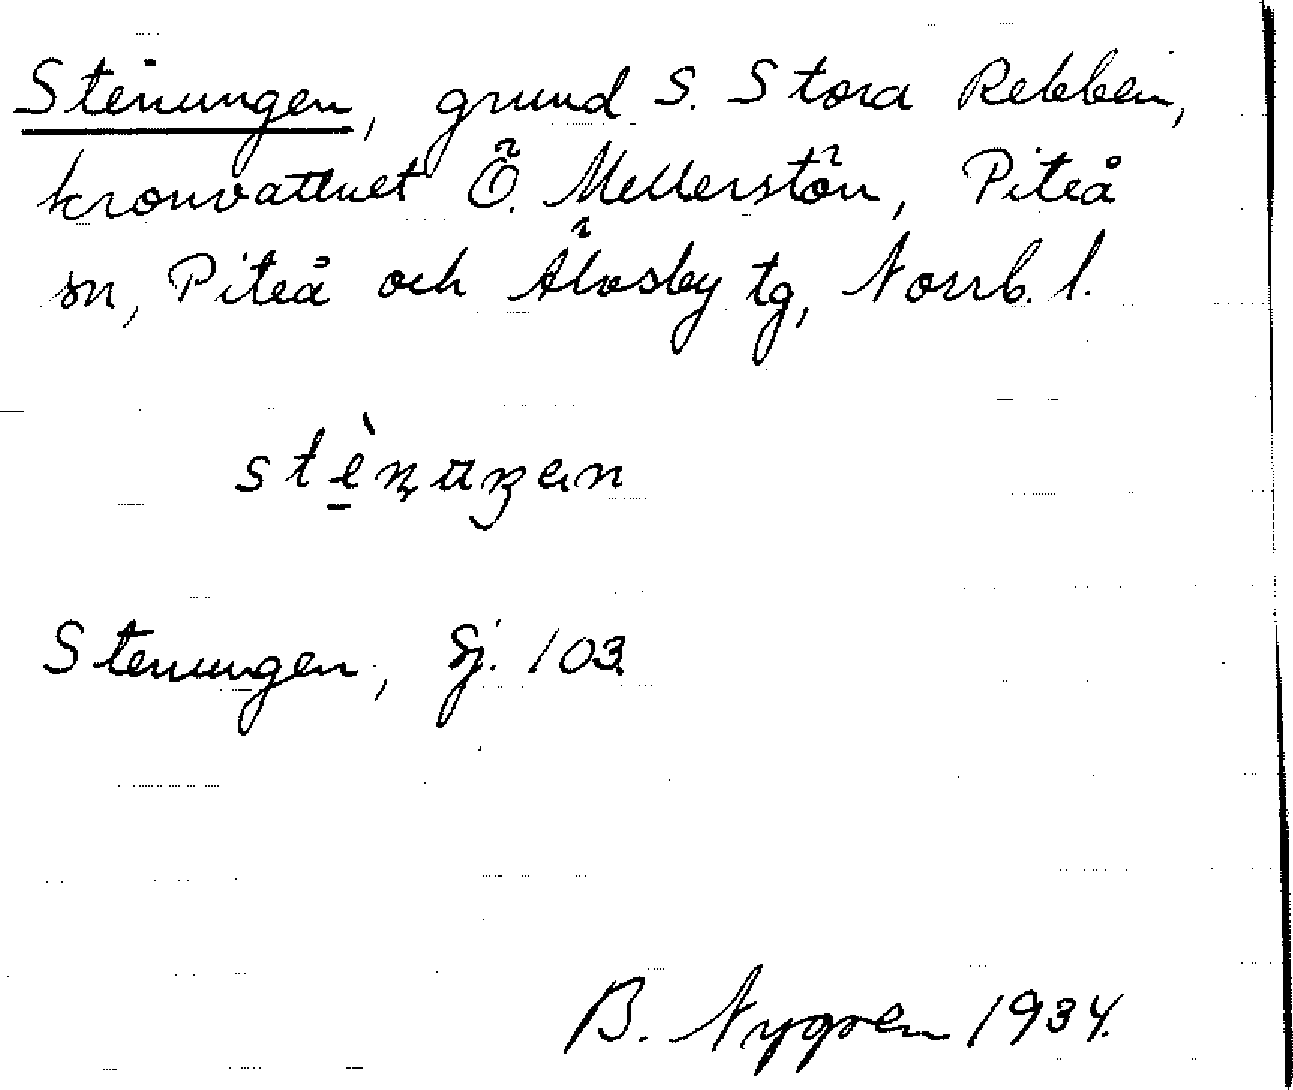 Stenungen, grund S. Stora Rebben,
kronvattnet Ö. Mellerstön, Piteå
sn, Piteå och Älvsby tg, Norrb. l.
Stenungen, Sj. 103
B. Nygren 1934.